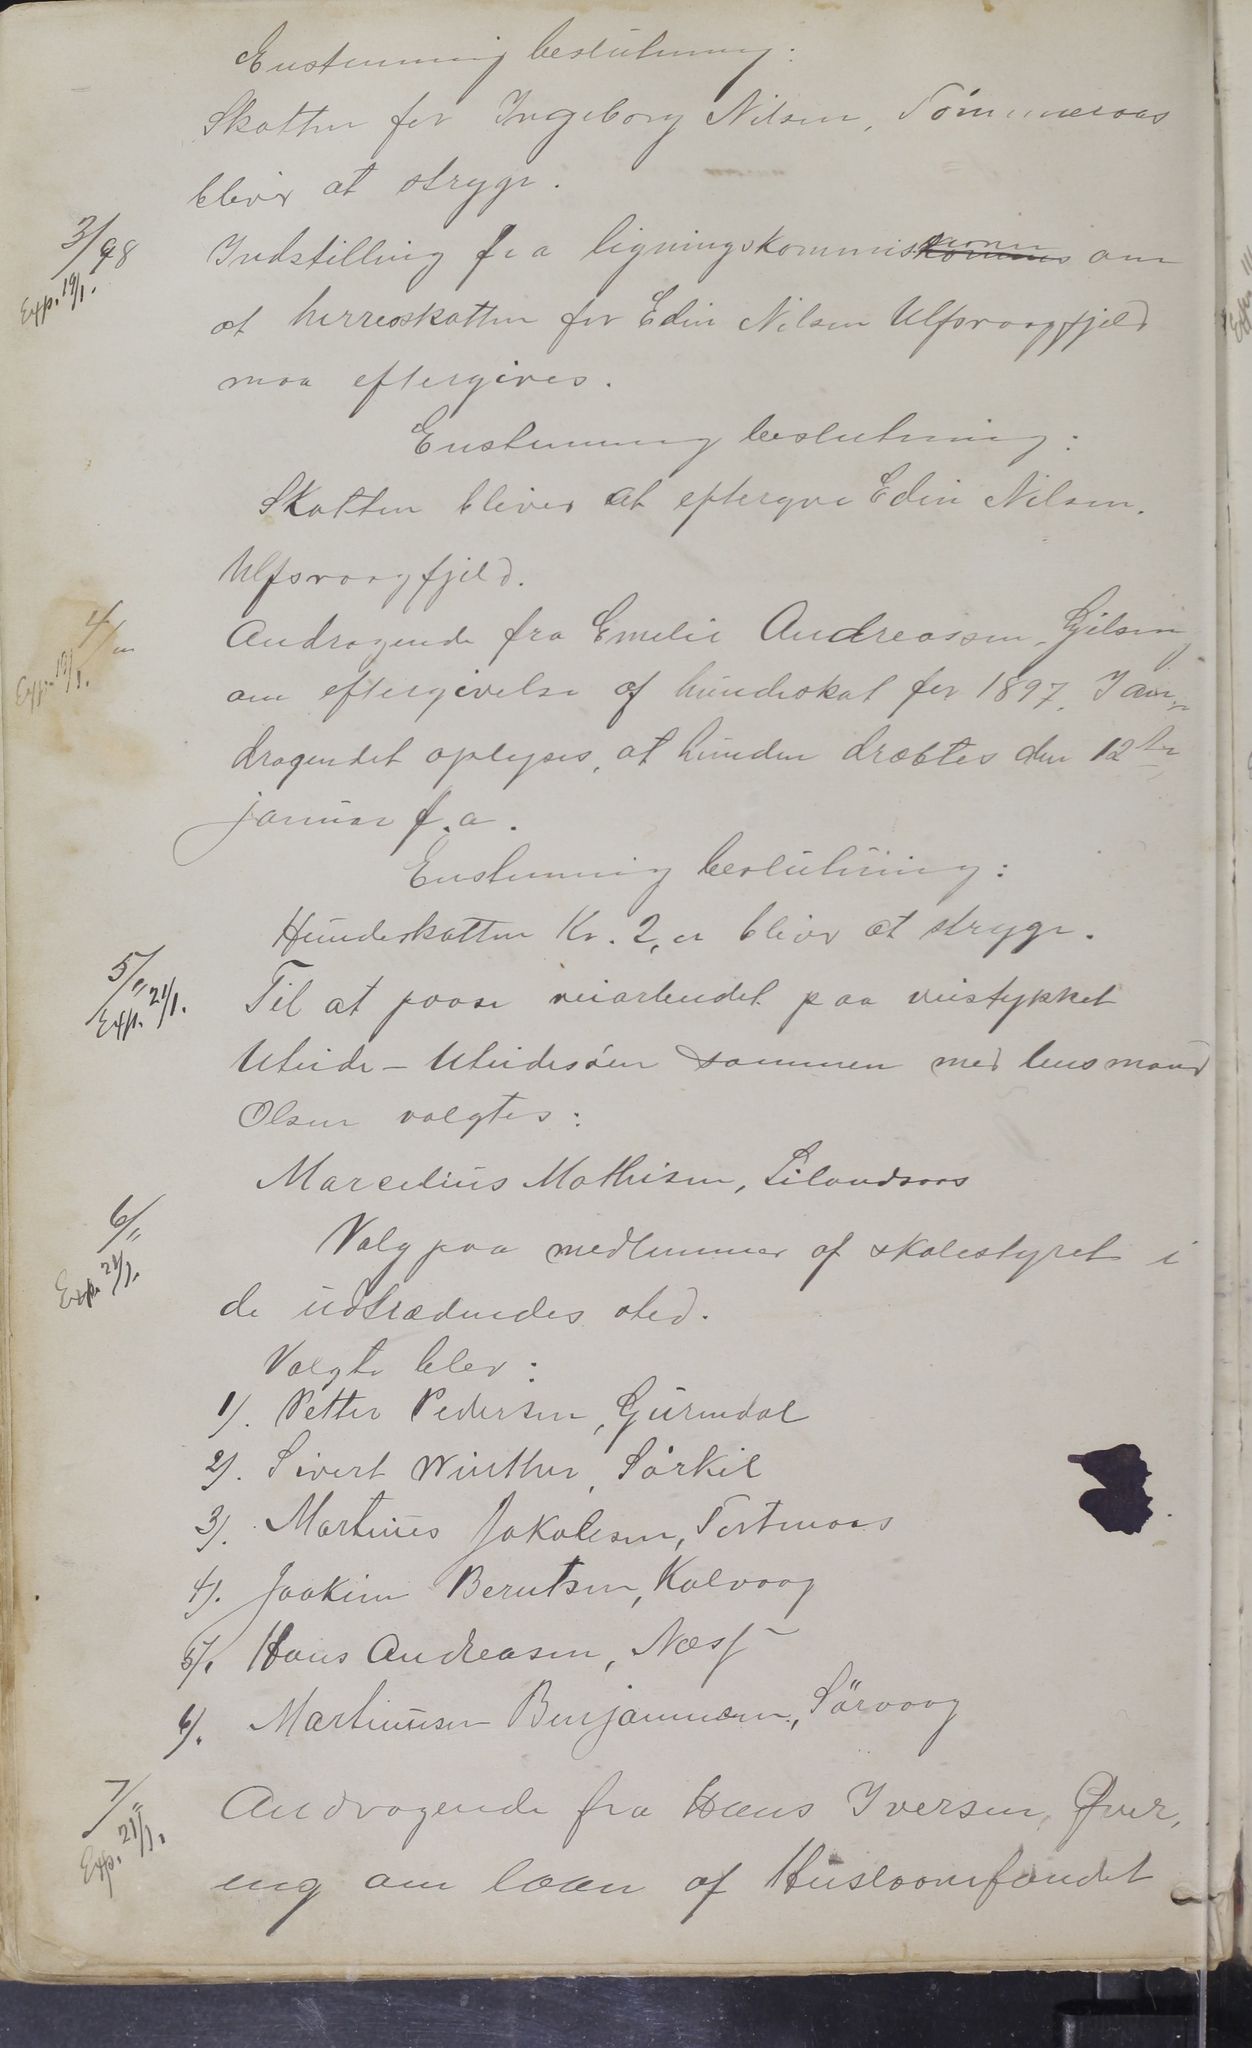 Enstemmig beslutning:
Skatten for Ingeborg Nilsen, Tømmeraas
bliver at stryge.
3/98 Indstilling fra ligningskommissionen om
Exp. 19/1.
at herredsskatten for Edin Nilsen Ulfsvaagfjeld
maa eftergives.
Enstemmig beslutning:
Skatten bliver at eftergive Edin Nilsen.
Ulfsvaagfjeld.
4/" Andragende fra Emelie Andreassen
Exp. 19/1.
om eftergivelse af hundeskat for 1897. I an-
dragendet oplyses, at hunden dræbtes den 12te
januar f.a.
Enstemmig beslutning:
Hundeskatten Kr. 2,00 bliver at stryge.
5/" Til at paase veiarbeidet paa veistykket
Exp. 21/1.
Uteide - Uteidesøen sammen med lensmand
Olsen valgtes:
Marcelius Mathisen, Lilandsaas
6/" Valg paa medlemmer af skolestyret i
Exp. 21/1.
de udtrædendes sted.
Valgte blev:
1). Petter Pedersen,
2). Sivert Winther, Sørkil
3). Martinus Jakobsen,
4). Joakim Berntsen, Kalvaag
5). Hans Andreasen, Næss
6). Martinusen Benjaminsen, Sørvaag
7/" Andragende fra Hans Iversen, Øver-
Exp. 21/1.
eng om laan af Huslaanefondet